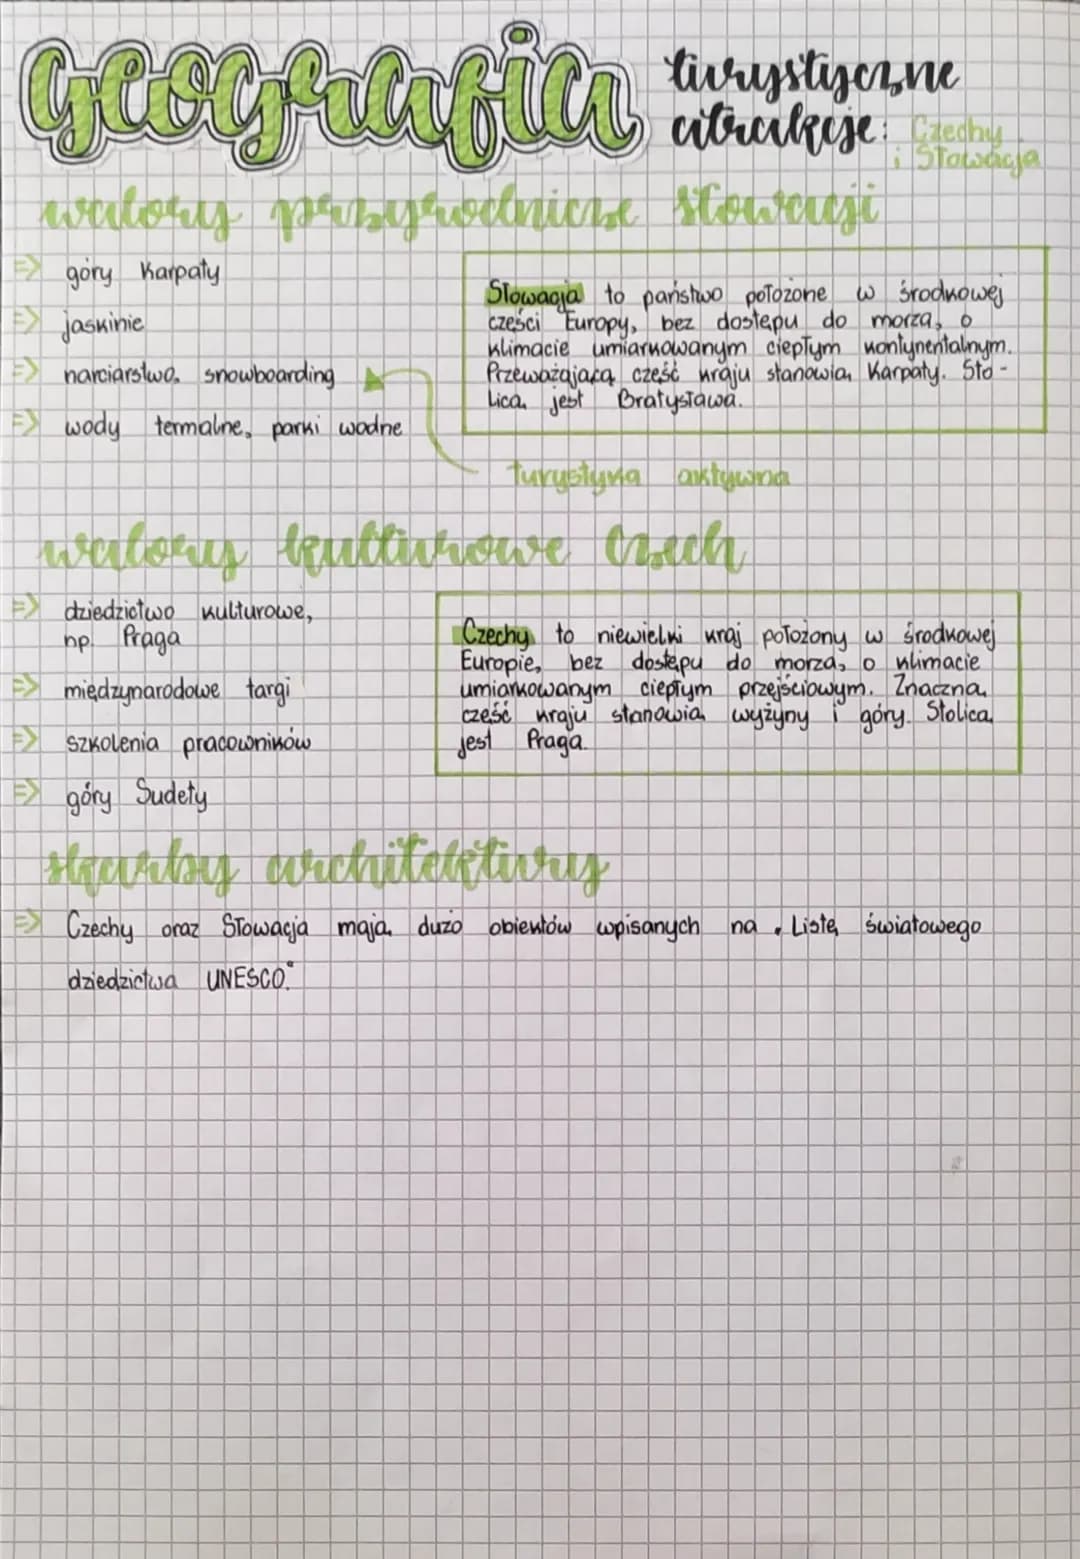 geografia
turystyczne
atrakcje: Czechy
i Słowacja
walory przyrodnicze Słowacji
=> góry Karpaty
=> jaskinie
=> narciarstwo, snowboarding
=> wody termalne, parki wodne
Słowacja to państwo położone w środkowej
cześci Europy, bez dostępu do morza, o
klimacie umiarkowanym ciepłym kontynentalnym.
Przeważającą cześć kraju stanowią Karpaty. Sto-
licą jest Bratysława.
turystyka aktywna
walory kulturowe Czech
=> dziedzictwo kulturowe,
np. Praga
=> międzynarodowe targi
=> szkolenia pracowników
=> góry Sudety
Czechy to niewielki kraj położony w środkowej
Europie, bez dostępu do morza, o klimacie
umiarkowanym ciepłym przejściowym. Znaczną
cześć kraju stanowią wyżyny i góry. Stolicą
jest Praga.
skarby architektury
=> Czechy oraz Słowacja mają dużo obiektów wpisanych na „Listę światowego
dziedzictwa UNESCO."